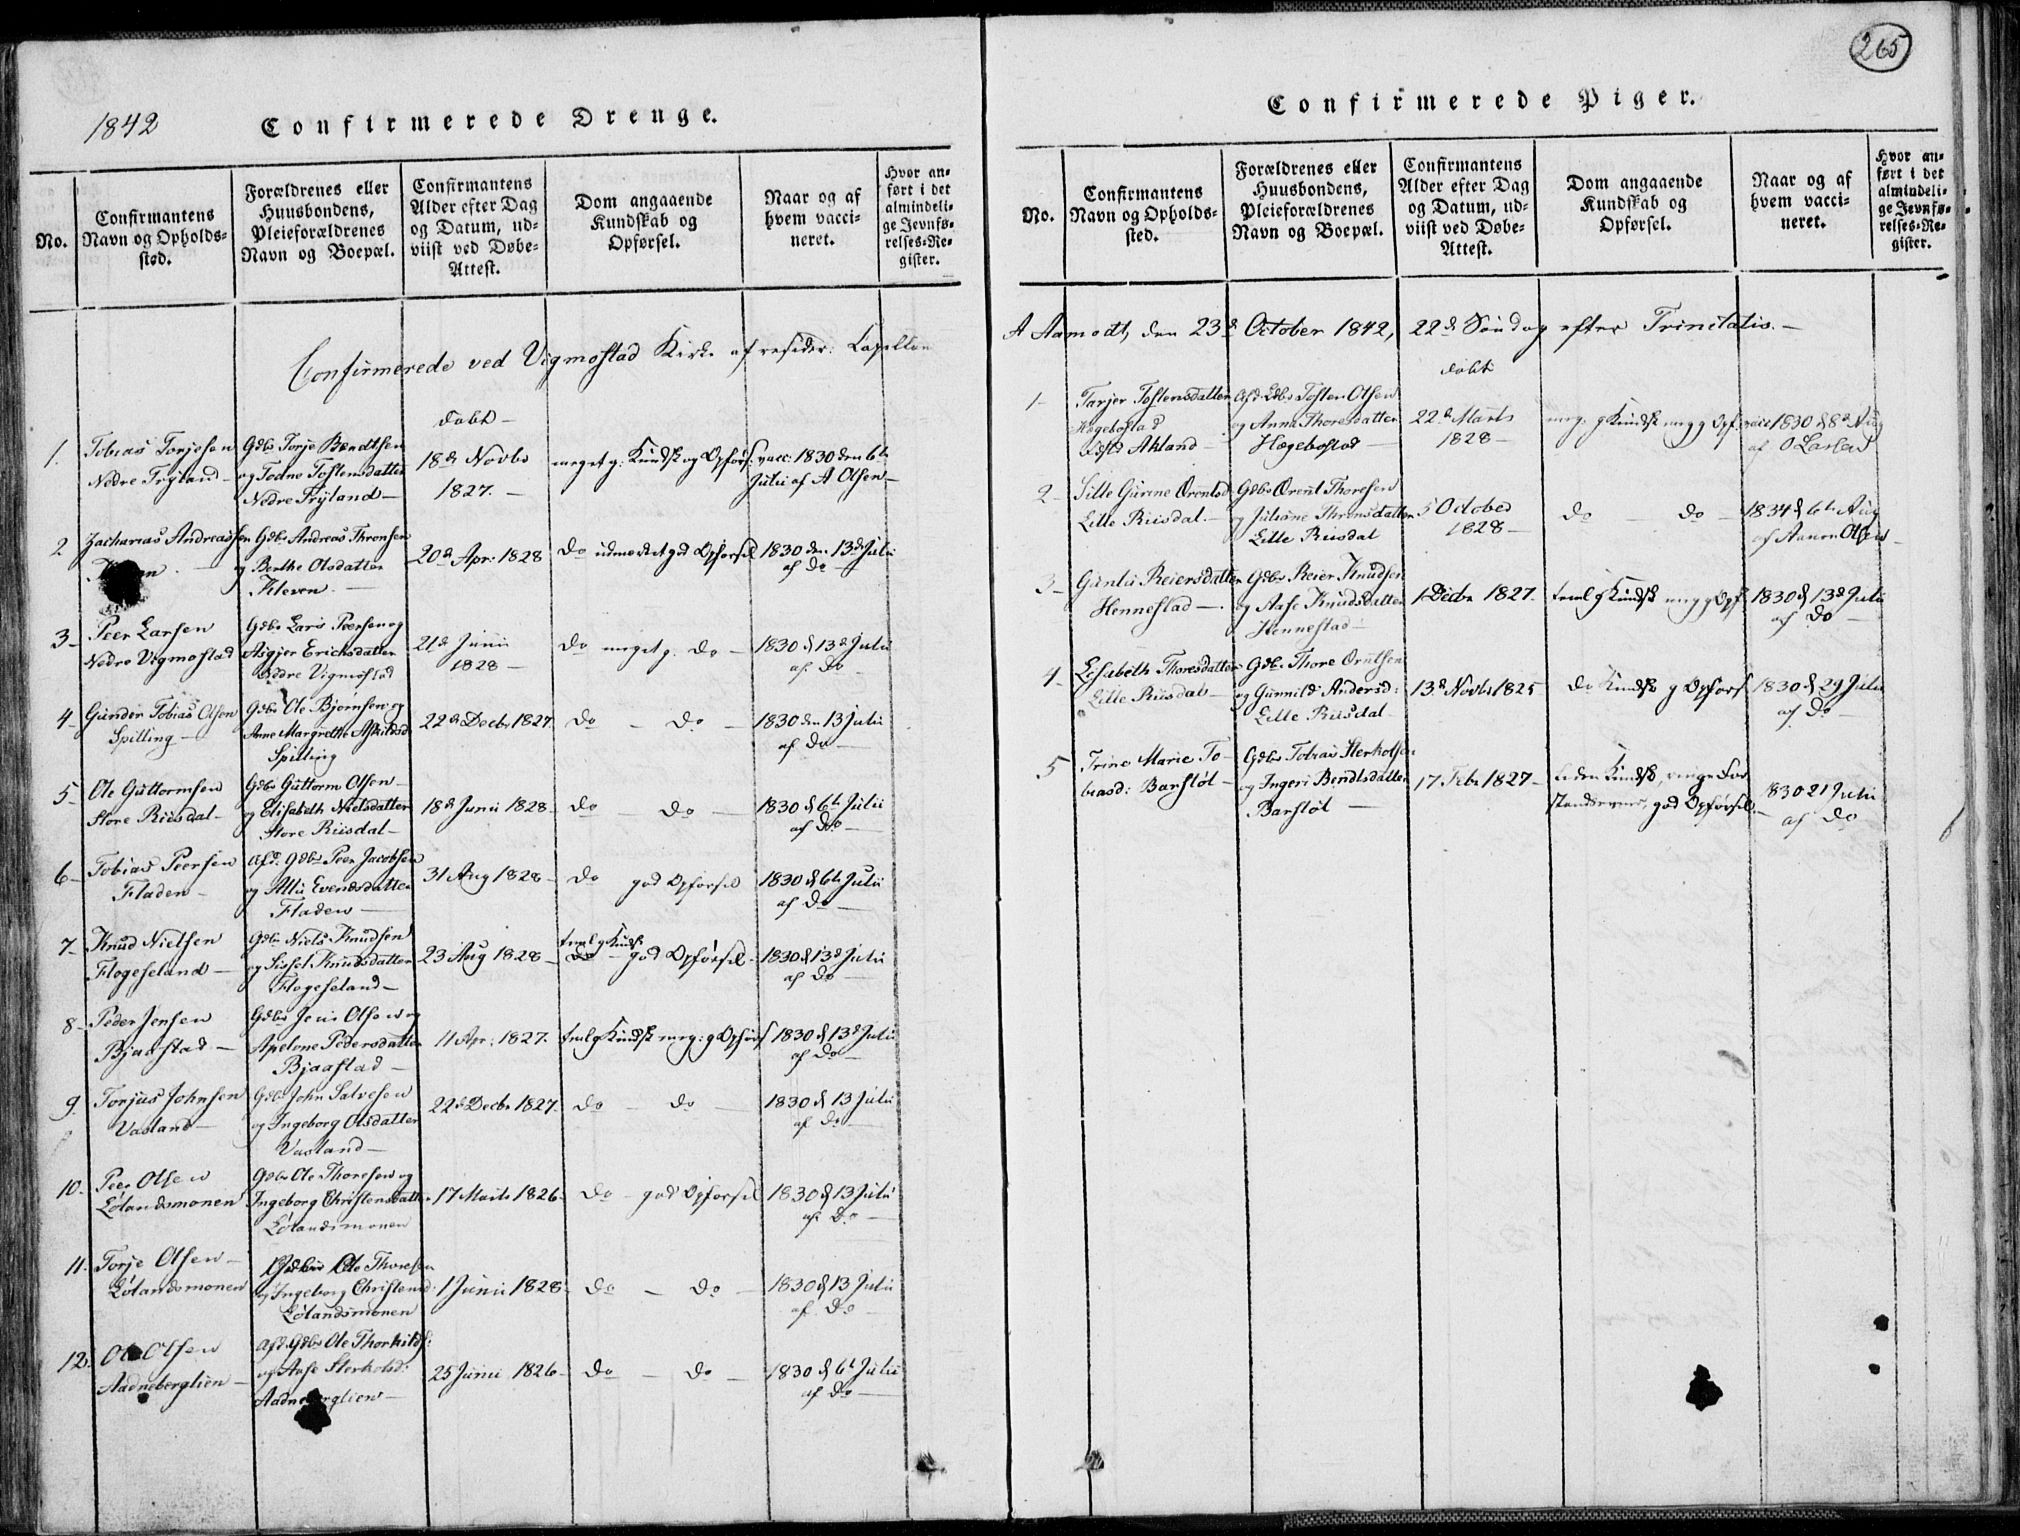 265
1842
Confirmerede Drenge.
No.
Confirmantens
Navn og Opholds-
sted.
Forældrenes eller
Huusbondens,
Pleieforældrenes
Navn og Boepæl.
Confirmantens
Alder efter Dag
og Datum, ud-
viist ved Døbe-
Attest.
Dom angaaende
Kundskab og
Opførsel.
Naar og af
hvem vacci-
neret.
Hvor an-
ført i det
almindeli-
ge Jevnfø-
relses-Re-
gister.
Confirmerede ved Vigmostad Kirke af resider: Capellan
døbt -
1. Tobias Torjesen
Nedre Tryland -
Gdbr Torje Berndtsen
og Todne Tostensdatter
Nedre Tryland -
18de Novbr
1827. -
meget g: Kundsk og Opførs:
vacc: 1830 den 6te
Julii af A Olsen -
2 Zacharias Andreassen
Gdbr Andreas Thronsen
og Berthe Olsdatter
Kleven -
20de Apr: 1828
do udmærket god Opførsel
1830 den 13de Julii
af do
3 - Peer Larsen
Nedre Vigmostad
Gdbr Lars Peersen og
Asgjer Erichsdatter
Nedre Vigmostad
21de Junii
1828 -
do meget g. do -
1830 d 13de Julii
af do
4 - Gunder Tobias Olsen
Spilling -
Gdbr Ole Bjørnsen og
Anne Margrethe Askildsd
Spilling
22de Decbr 1827.
do - do -
1830 den 13 Julii
af do -
5 - Ole Guttormsen
Store Riisdal -
Gdbr Guttorm Olsen -
og Elisabeth Nielsdatter
Store Riisdal -
18de Junii 1828 -
do - do -
1830 d 6te Julii
af do -
6 - Tobias Peersen
Fladen -
Afd: Gdbr Peer Jacobsen
og Atlu Evendsdatter
Fladen -
31 Aug 1828 -
do god Opførsel
1830 d 6te Julii
af do -
7 - Knud Nielsen
Flogeseland -
Gdbr Niels Knudsen
og Sissel Knudsdatter
Flogeseland -
23 Aug 1828 -
teml g Kundsk
do - god Opførsel -
1830 d 13de Julii
af do -
8 - Peder Jensen
Bjaastad -
Gdbr Jens Olsen og
Apelone Pedersdatter
Bjaastad -
11 Apr: 1827.
teml g Kundsk meg: g Opførs
1830 d 13de Julii
af do -
9. Torjus Johnsen
Vasland -
Gdbr John Salvesen
og Ingeborg Olsdatter
Vasland -
22de Decbr 1827.
do - do -
1830 d 13 Julii
af do -
10. Peer Olsen
Løland​smonen
Gdbr Ole Thoresen og
Ingeborg Christensdatter
Lølandsmonen
17 Marts 1826.
do - god Opførsel
1830 d 13 Julii
af do -
11. Torje Olsen -
Lølandsmonen
Ole Thoresen
og Ingeborg Christensd:
Lølandsmonen
1 Junii 1828.
do - do -
1830 d 13 Julii
af do -
12. Ole Olsen
Aadneberglien -
Afd: Gdbr Ole Thorkilds:
og Aase Sterkolsd:
Aadneberglien -
25 Junii 1826 -
do - do -
1830 d 6t Julii
af do -
Confirmerede Piger.
No.
Confirmantens
Navn og Opholds-
sted.
Forældrenes eller
Huusbondens,
Pleieforældrenes
Navn og Boepæl.
Confirmantens
Alder efter Dag
og Datum, ud-
viist ved Døbe-
Attest.
Dom angaaende
Kundskab og
Opførsel.
Naar og af
hvem vacci-
neret.
Hvor an-
ført i det
almindeli-
ge Jevnfø-
relses-Re-
gister.
A Aamodt, den 23de October 1842, 22de Søndag efter Trinitatis. -
døbt
1 - Tarjer Tostensdatter
Hægebostad
Akland -
Afd: Gdbr Tosten Olsen
og Anna Thoresdatter
Hægebostad -
22de Marts
1828 -
meg: g Kundsk meg g Opf:
vacc 1830 d 8de Aug
af O Larsen
2 - Gurine Orentsd
Lille Riisdal. -
Gdbr Orent Thoresen
og Juliane Thronsdatter
Lille Riisdal
5 October
1828 -
do - do -
1834 d 6te Aug
af Aanen Olsen -
3 - Guntu Reiersdatter
Hennestad -
Gdbr Reier Knudsen
og Aase Knudsdatter
Hennestad -
1 Decbr 1827.
teml g Kundsk meg g Opf
1830 d 13de Julii
af do -
4 - Elisabeth Thoresdatter
Lille Riisdal -
Gdbr Thore Orntsen
og Gunnild Andersd:
Lille Riisdal -
13de Novbr 1825
do Kundsk g Opførs
1830 d 29 Julii
af do -
5 Trine Marie To-
biasd: Barstøl -
Gdbr Tobias Sterkolsen
og Ingeri Berndtsdatter
Barstøl -
17 Febr 1827 -
liden Kundsk, ringe For
standsevner, god Opførsel -
1830 21 Julii
af do